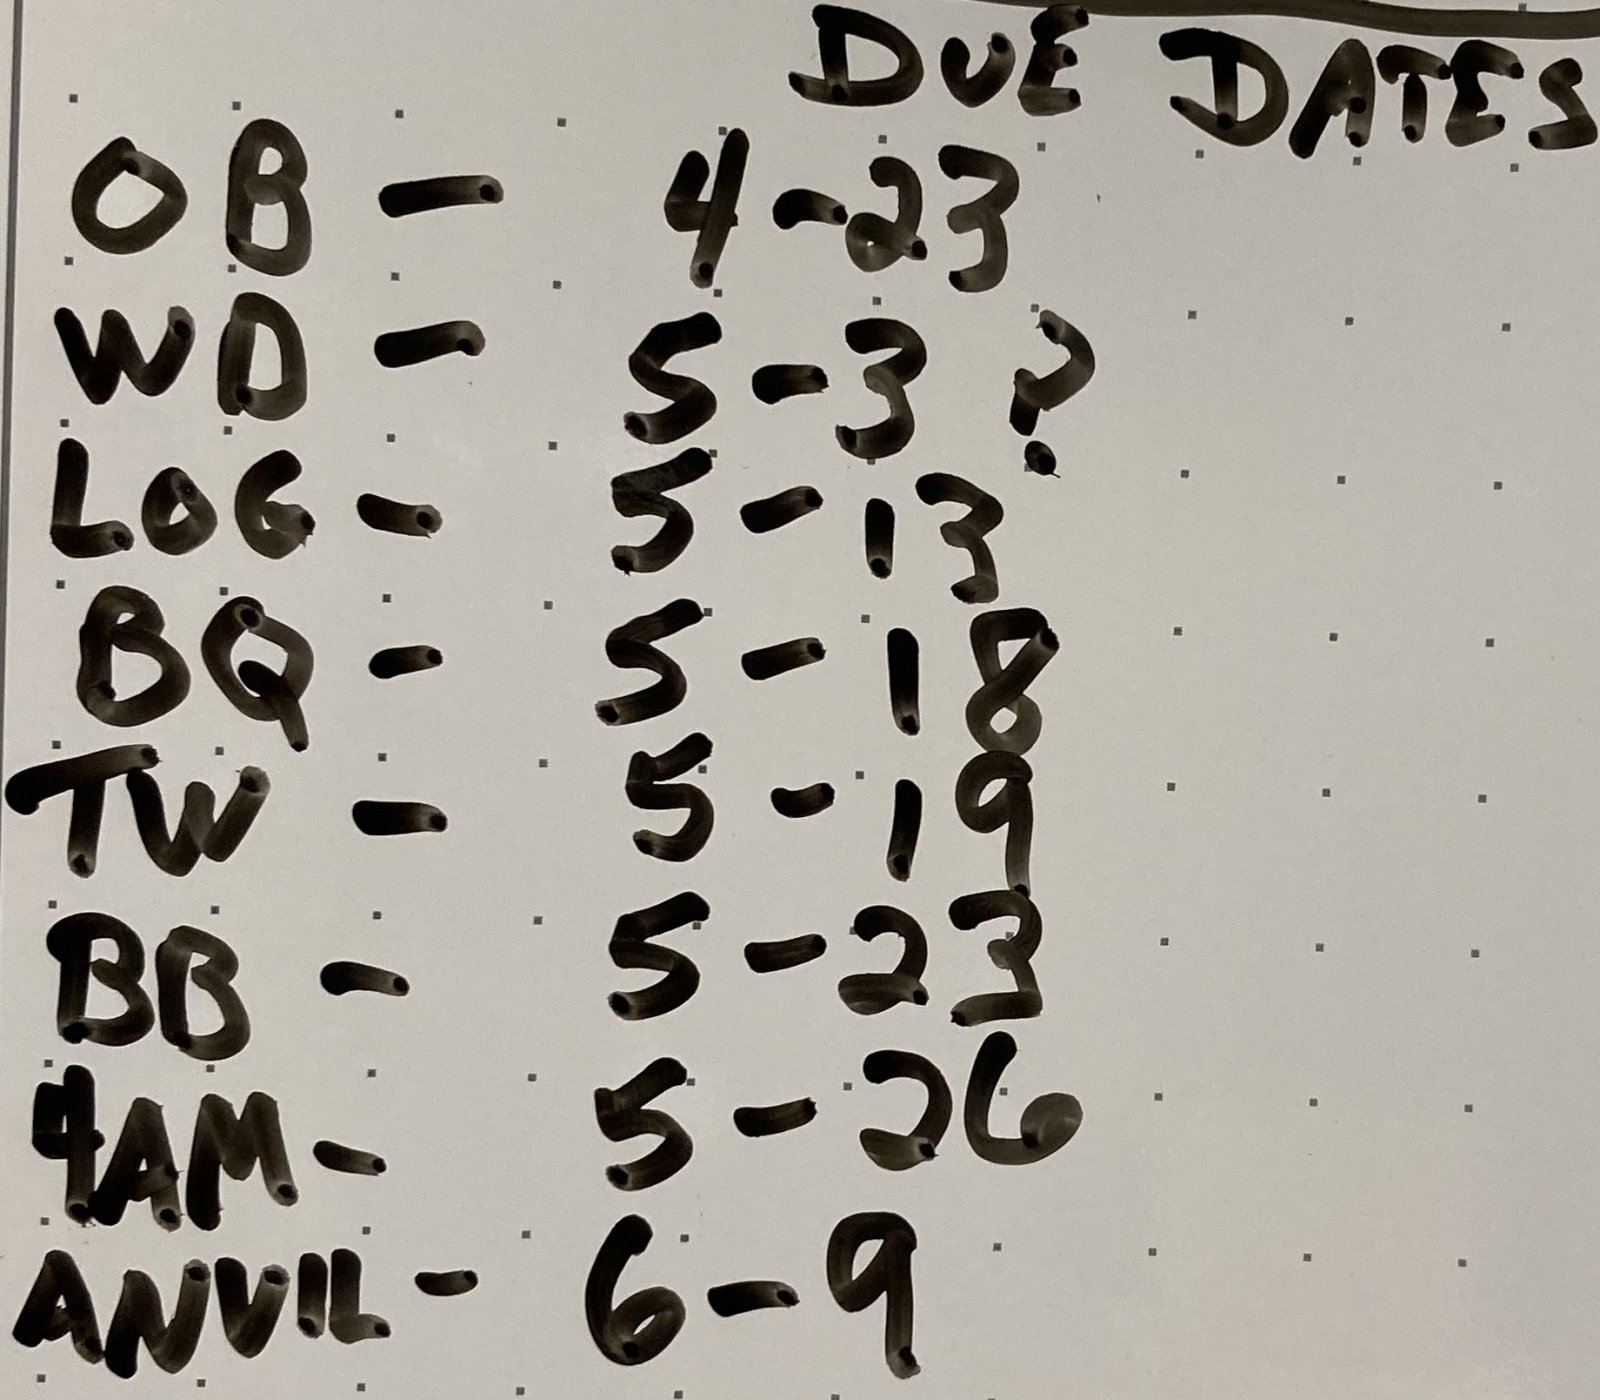 DUE DATES
OB - 4-23
WD - 5-3 ?
LOG - 5-13
BQ - 5-18
TW - 5-19
BB - 5-23
4AM - 5-26
ANVIL - 6-9